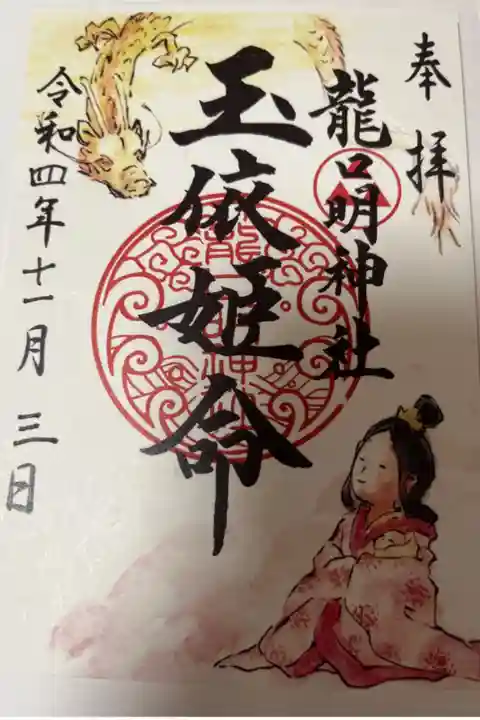 奉拝
龍口明神社
玉依姫命
令和四年十一月三日